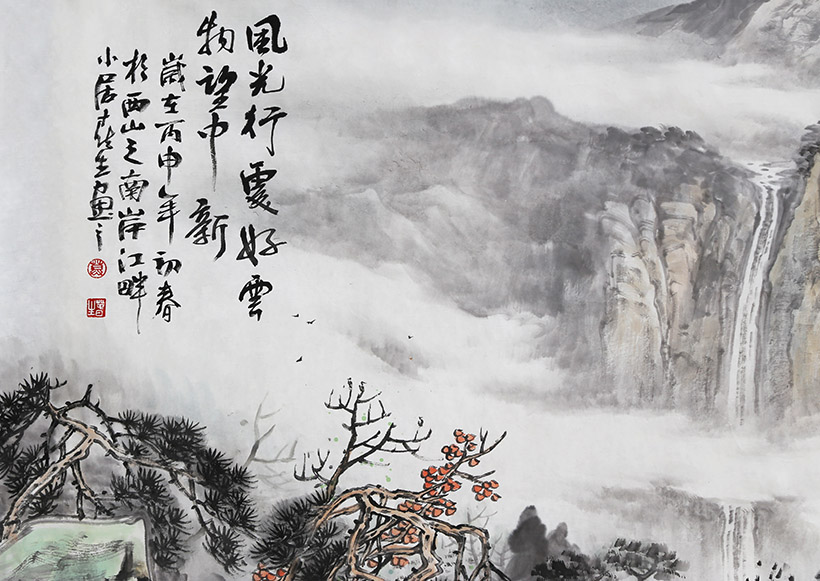 風光行處好雲
物望中新
歲在丙申年初春
於西山之南岸江畔
小居生畫之